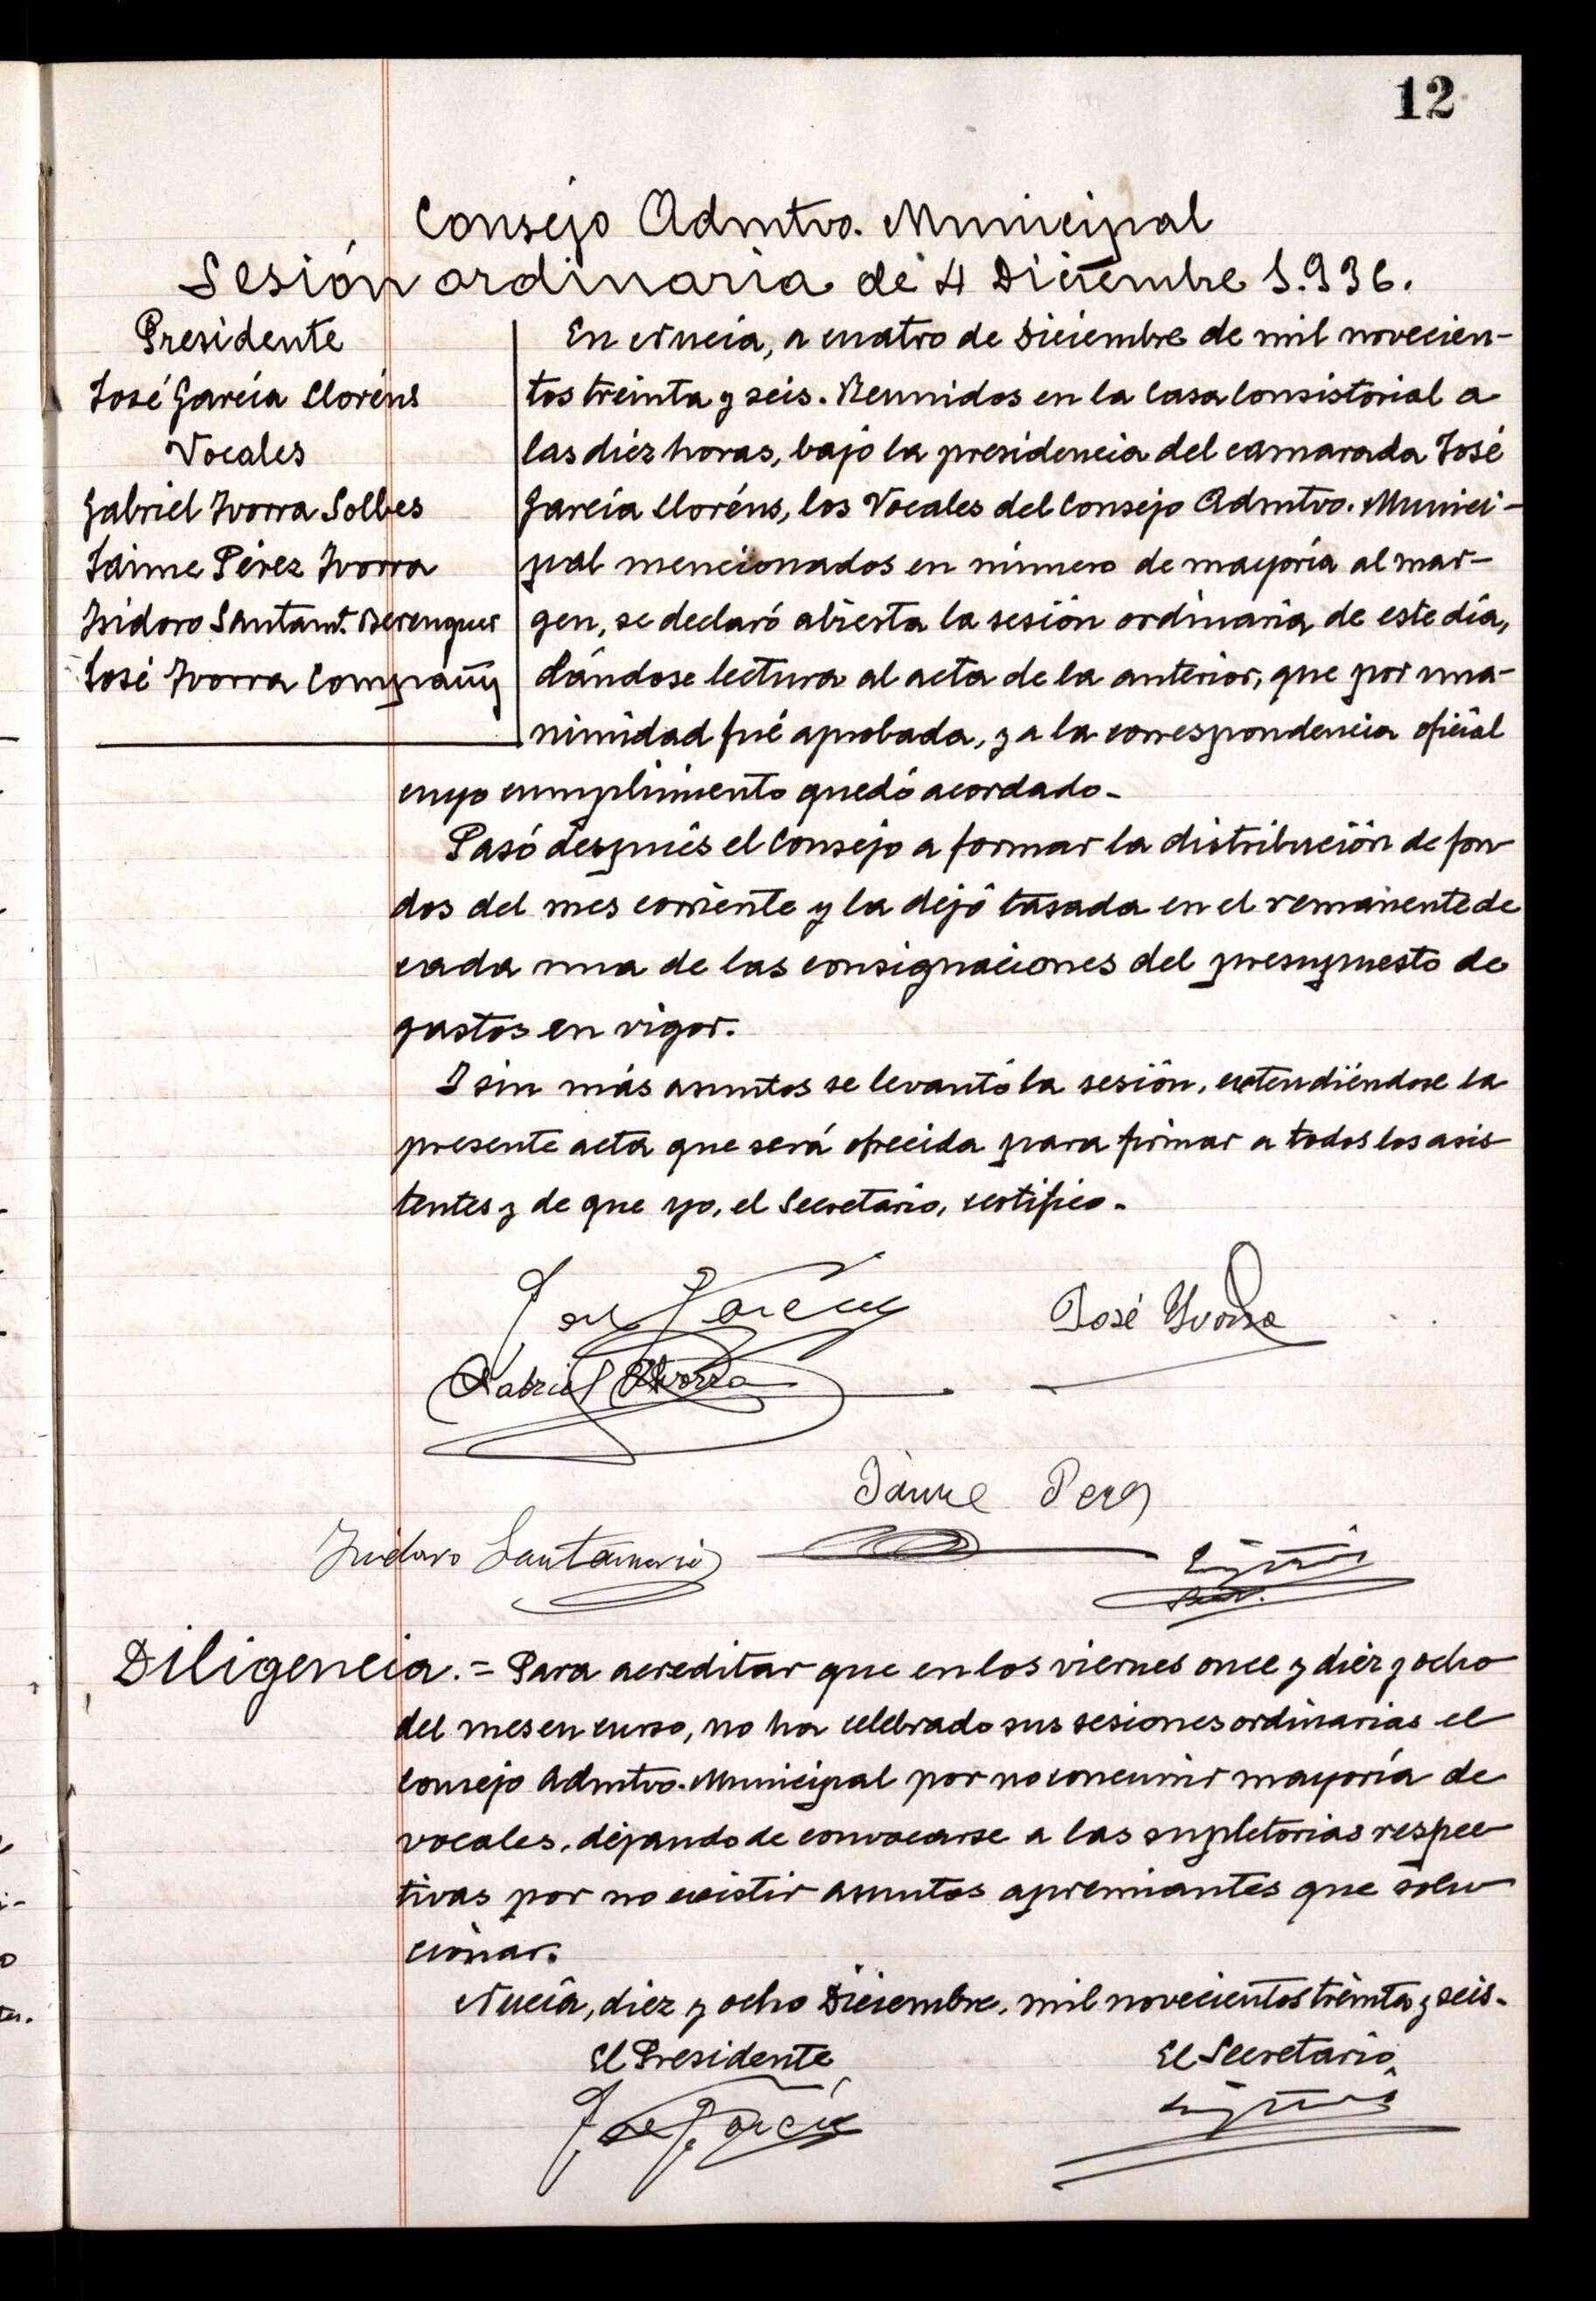 12
Consejo Admtvo. Municipal
Sesión ordinaria de 4 Diciembre 1.936.
Presidente
José García Lloréns
Vocales
Gabriel Ivorra Solbes
Jaime Pérez Ivorra
Isidoro Santamª. Berenguer
José Ivorra Compañy
En Nucía, a cuatro de Diciembre de mil novecien-
tos treinta y seis. Reunidos en la Casa Consistorial a
las diéz horas, bajo la presidencia del camarada José
García Lloréns, los Vocales del Consejo Admtvo. Munici-
pal mencionados en número de mayoría al mar-
gen, se declaró abierta la sesión ordinaria de este día,
dándose lectura al acta de la anterior, que por una-
nimidad fué aprobada, y a la correspondencia oficial
cuyo cumplimiento quedó acordado.
Pasó después el Consejo a formar la distribución de fon
dos del mes corriente y la dejó tasada en el remanente de
cada una de las consignaciones del presupuesto de
gastos en vigor.
I sin más asuntos se levantó la sesión, extendiéndose la
presente acta que será ofrecida para firmar a todos los asis
tentes y de que yo, el Secretario, certifico.
José García
José Yvorra
Gabriel Ivorra
Jaime Perez
Isidoro Santamaria
Diligencia.= Para acreditar que en los viernes once y diéz y ocho
del mes en curso, no ha celebrado sus sesiones ordinarias el
Consejo Admtvo. Municipal por no concurrir mayoría de
vocales, dejando de convocarse a las supletorias respec
tivas por no existir asuntos apremiantes que solu
cionar.
Nucía, diez y ocho Diciembre, mil novecientos treinta y seis.
El Presidente,
El Secretario,
José García